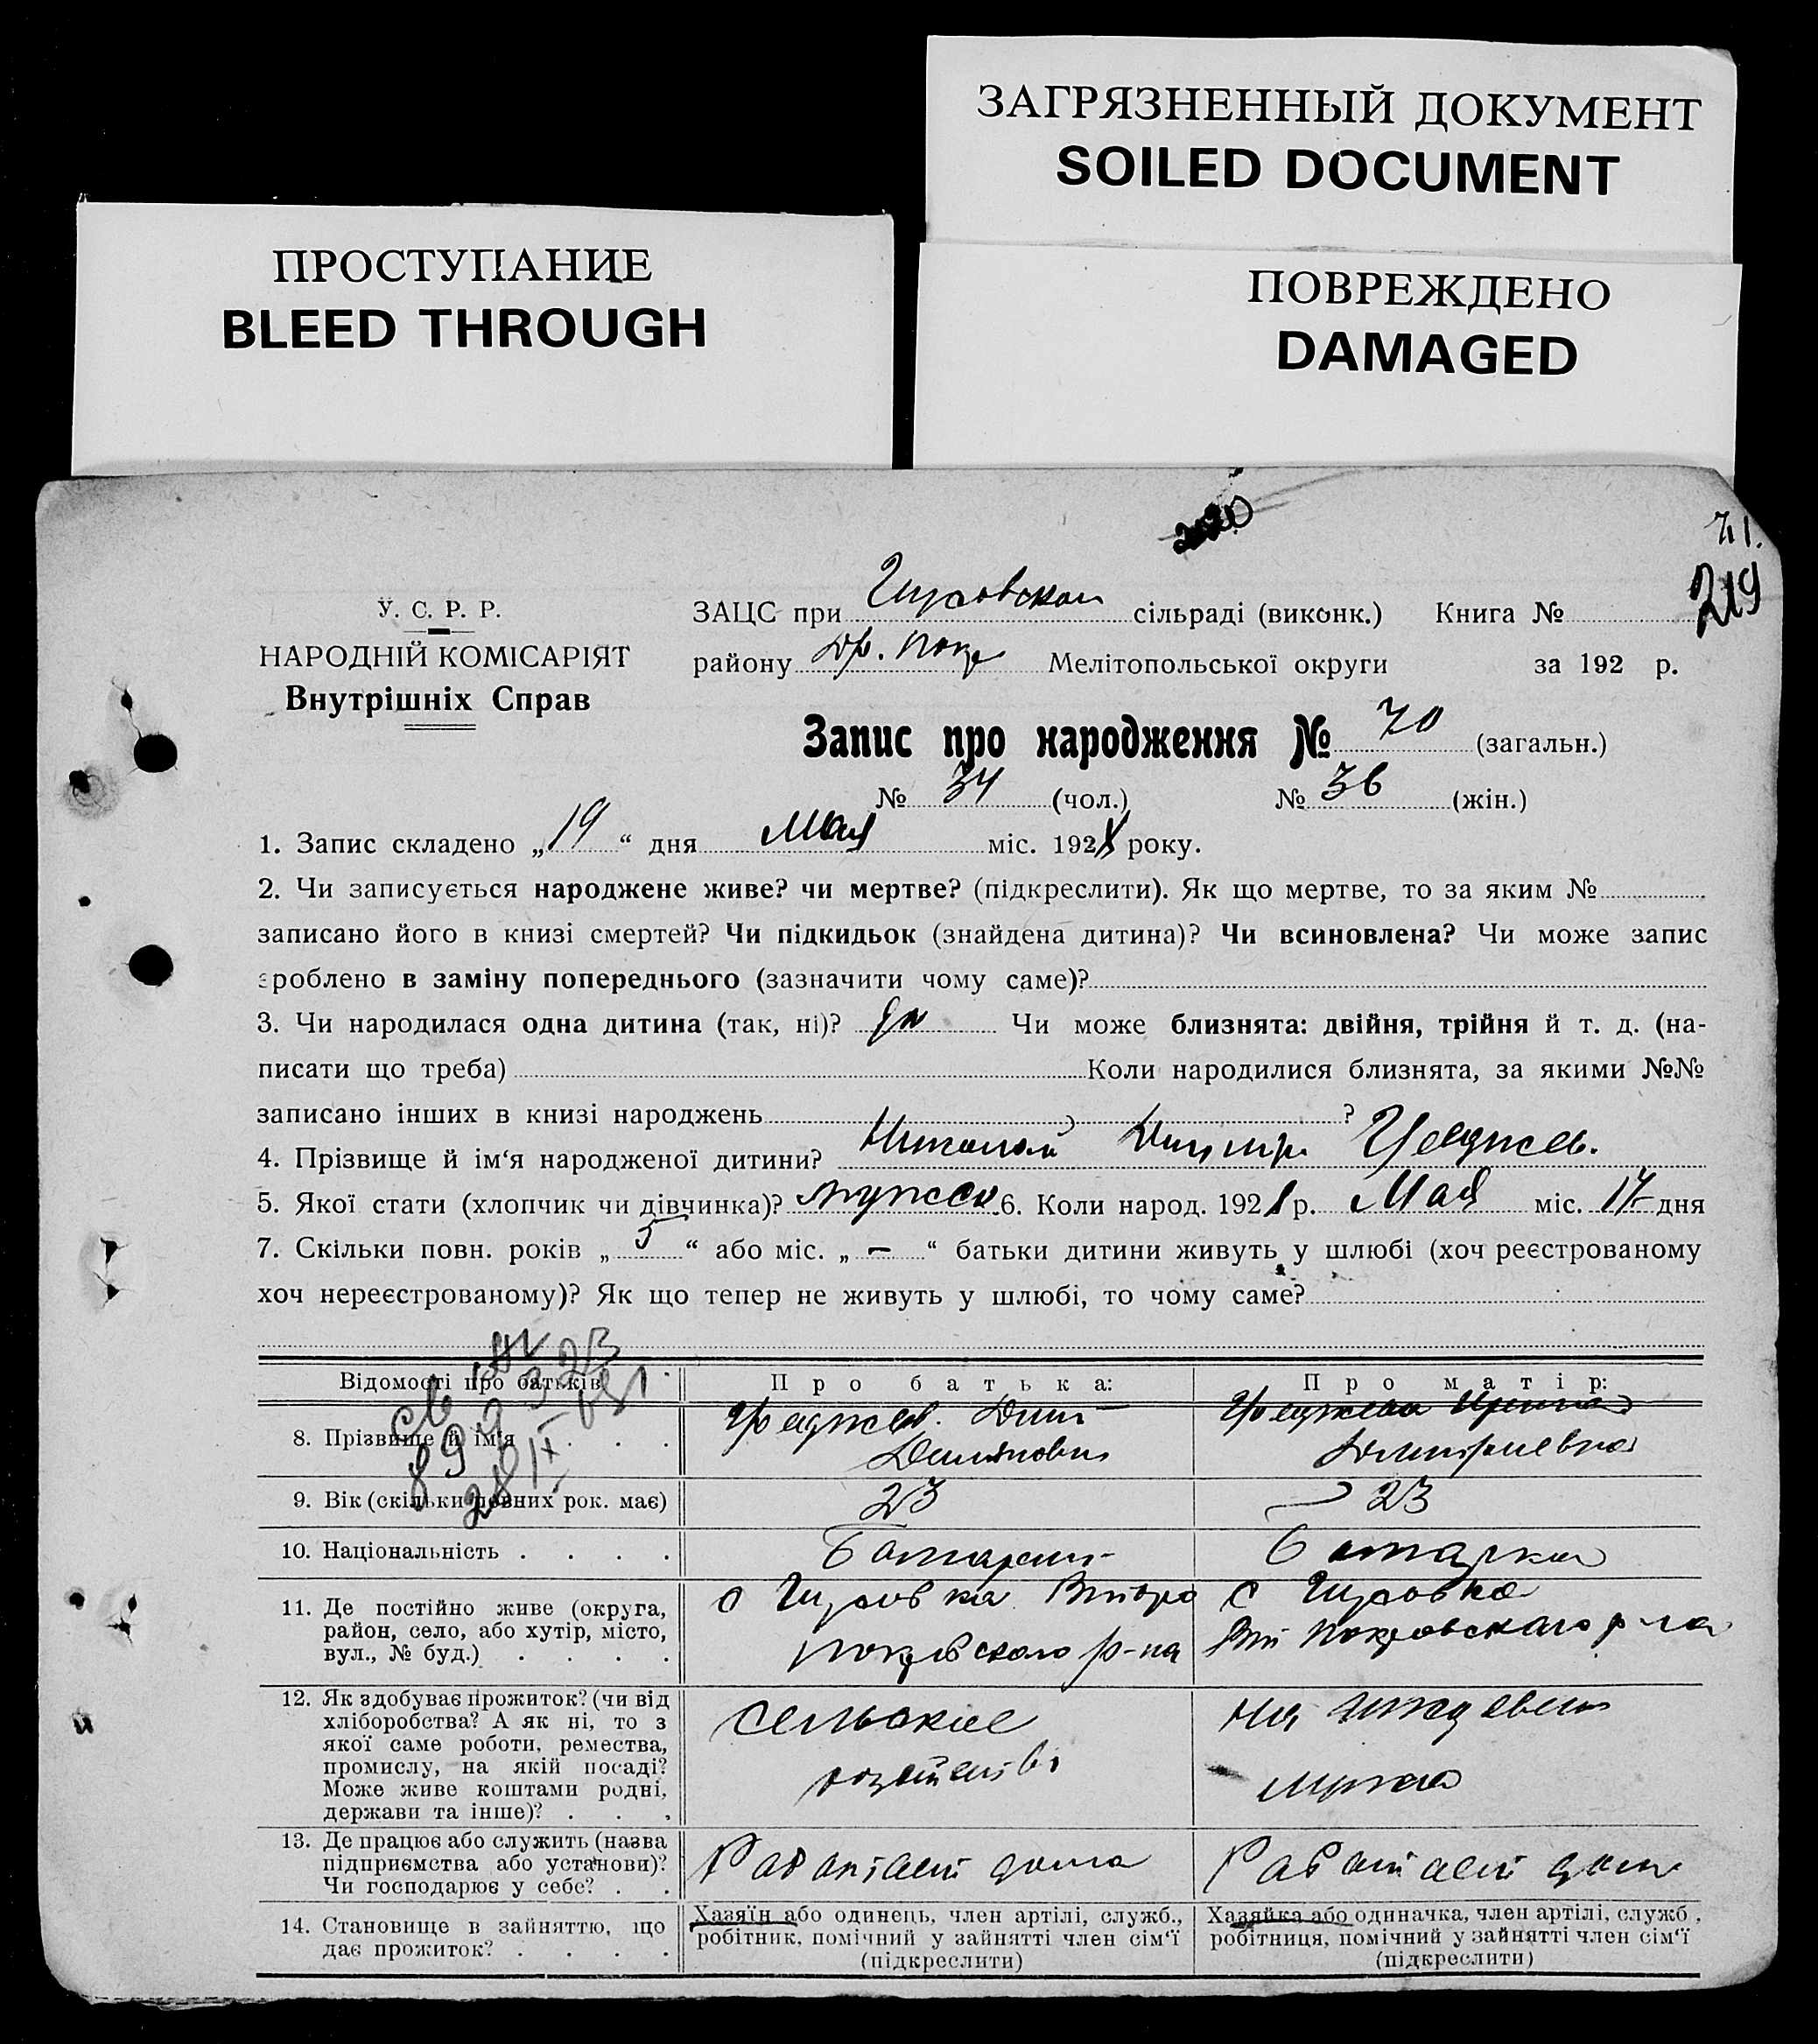 ЗАГРЯЗНЕННЫЙ ДОКУМЕНТ
SOILED DOCUMENT
ПРОСТУПАНИЕ
BLEED THROUGH
ПОВРЕЖДЕНО
DAMAGED
71.
219
У. С. Р. Р.
НАРОДНІЙ КОМІСАРІЯТ
Внутрішніх Справ
ЗАЦС при Гирсовском сільраді (виконк.) Книга №
району Вт. Покр Мелітопольської округи за 192 р.
Запис про народження № 70 (загальн.)
№ 34 (чол.) № 36 (жін.)
1. Запис складено „19“ дня Мая міс. 192 року.
2. Чи записується народжене живе? чи мертве? (підкреслити). Як що мертве, то за яким №
записано його в книзі смертей? Чи підкидьок (знайдена дитина)? Чи всиновлена? Чи може запис
зроблено в заміну попереднього (зазначити чому саме)?
3. Чи народилася одна дитина (так, ні)? да Чи може близнята: двійня, трійня й т. д. (на-
писати що треба) Коли народилися близнята, за якими №№
записано інших в книзі народжень ?
4. Прізвище й ім‘я народженої дитини? Николай Димитр.
5. Якої стати (хлопчик чи дівчинка)? мужск 6. Коли народ. 192 р. Мая міс. 17 дня
7. Скільки повн. років „ 5 “ або міс. „ — “ батьки дитини живуть у шлюбі (хоч реєстрованому
хоч нереєстрованому)? Як що тепер не живуть у шлюбі, то чому саме?
Відомості про батьків Про батька: Про матір:
8. Прізвище й ім‘я . . . Дмит Ирина
Демянович Дмитриевна
9. Вік (скільки повних рок. має) 23 23
10. Національність . . . . Болгарин Болгарка
11. Де постійно живе (округа, с Гирсовка Второ с Гирсовка
район, село, або хутір, місто, покровского р-на Вт Покровского р-на
вул., № буд.) . . . .
12. Як здобуває прожиток? (чи від сельское на иждевении
хліборобства? А як ні, то з
якої саме роботи, ремества, хозяйство мужа
промислу, на якій посаді?
Може живе коштами родні,
держави та інше)? . . .
13. Де працює або служить (назва Работает дома Работает дома
підприємства або установи)?
Чи господарює у себе? . .
14. Становище в зайняттю, що Хазяїн або одинець, член артілі, служб., Хазяйка або одиначка, член артілі, служб.,
дає прожиток? . . . . робітник, помічний у зайнятті член сім‘ї робітниця, помічний у зайнятті член сім‘ї
(підкреслити) (підкреслити)